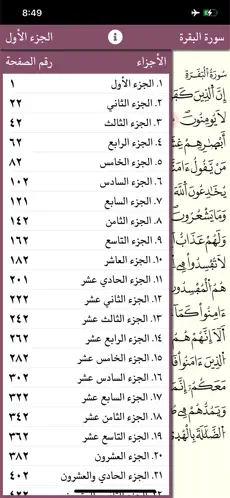 8:49
سورة البقرة
الجزء الأول
الأجزاء
رقم الصفحة
١. الجزء الأول ١
٢. الجزء الثاني ٢٢
٣. الجزء الثالث ٤٢
٤. الجزء الرابع ٦٢
٥. الجزء الخامس ٨٢
٦. الجزء السادس ١٠٢
٧. الجزء السابع ١٢١
٨. الجزء الثامن ١٤٢
٩. الجزء التاسع ١٦٢
١٠. الجزء العاشر ١٨٢
١١. الجزء الحادي عشر ٢٠١
١٢. الجزء الثاني عشر ٢٢٢
١٣. الجزء الثالث عشر ٢٤٢
١٤. الجزء الرابع عشر ٢٦٢
١٥. الجزء الخامس عشر ٢٨٢
١٦. الجزء السادس عشر ٣٠٢
١٧. الجزء السابع عشر ٣٢٢
١٨. الجزء الثامن عشر ٣٤٢
١٩. الجزء التاسع عشر ٣٦٢
٢٠. الجزء العشرون ٣٨٢
٢١. الجزء الحادي والعشرون ٤٠٢
سُورَةُ الْبَقَرَةِ
إِنَّ الَّذِينَ
لَا يُؤْمِنُونَ
أَبْصَارِهِمْ
مَنْ يَقُولُ
يُخَادِعُونَ اللَّهَ
وَمَا يَشْعُرُونَ
وَلَهُمْ عَذَابٌ
لَا تُفْسِدُوا فِي
هُمُ الْمُفْسِدُونَ
ءَامِنُوا كَمَا
أَلَا إِنَّهُمْ هُمُ
الَّذِينَ ءَامَنُوا
مَعَكُمْ إِنَّمَا
وَيَمُدُّهُمْ فِي
الضَّلَالَةَ